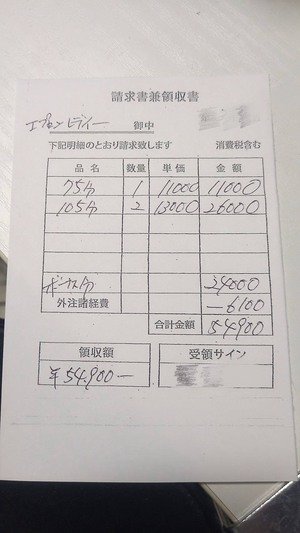 請求書兼領収書
エプロンレディー 御中
下記明細のとおり請求致します 消費税含む
品名 数量 単価 金額
75分 1 11000 11000
105分 2 13000 26000
24000
外注諸経費 -6100
合計金額 54900
領収額 受領サイン
¥54,900-